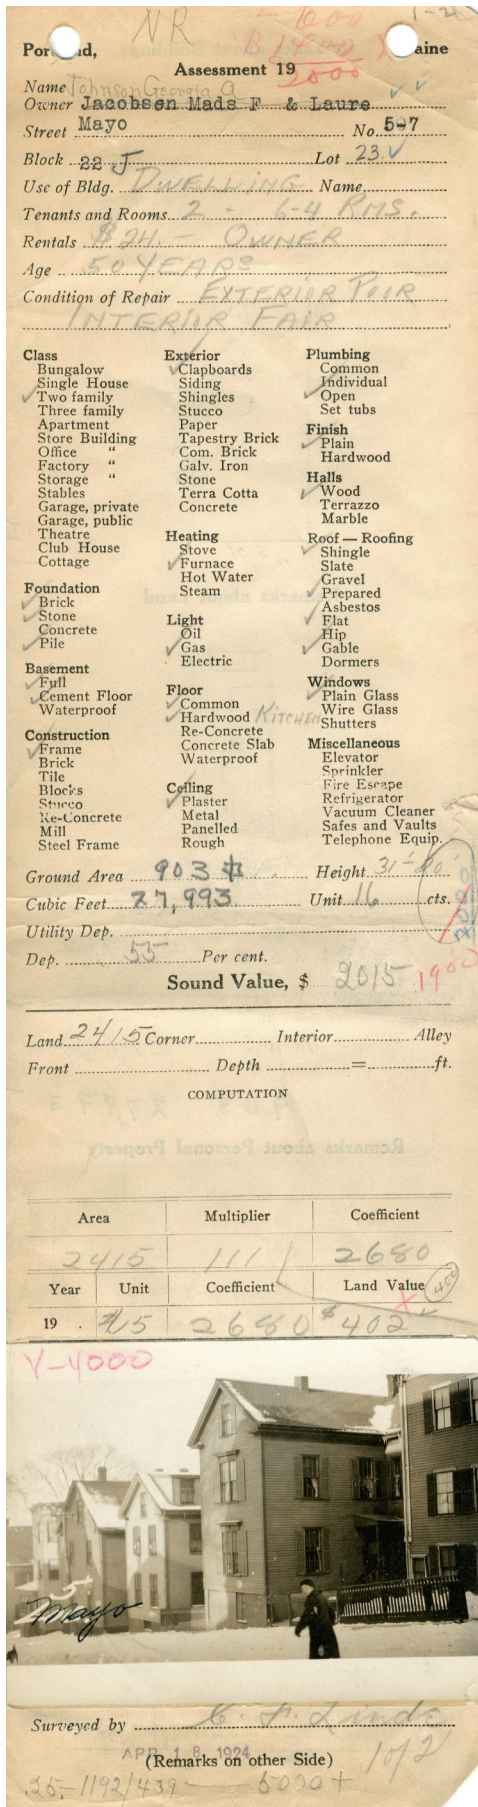 NR
- 600
1-2
B 1400
2000
Portland, Maine
Assessment 19
Name Johnson Georgia A
Owner Jacobsen Mads F & Laure
Street Mayo No. 5-7
Block 22 J Lot 23
Use of Bldg. DWELLING Name
Tenants and Rooms 2 - 6-4 RMS.
Rentals $24.- OWNER
Age 50 YEARS
Condition of Repair EXTERIOR POOR
INTERIOR FAIR
Class
Bungalow
Single House
✓ Two family
Three family
Apartment
Store Building
Office "
Factory "
Storage "
Stables
Garage, private
Garage, public
Theatre
Club House
Cottage
Foundation
✓ Brick
✓ Stone
Concrete
✓ Pile
Basement
✓ Full
✓ Cement Floor
Waterproof
Construction
✓ Frame
Brick
Tile
Blocks
Stucco
Re-Concrete
Mill
Steel Frame
Exterior
✓ Clapboards
Siding
Shingles
Stucco
Paper
Tapestry Brick
Com. Brick
Galv. Iron
Stone
Terra Cotta
Concrete
Heating
Stove
✓ Furnace
Hot Water
Steam
Light
Oil
✓ Gas
Electric
Floor
✓ Common
✓ Hardwood KITCHEN
Re-Concrete
Concrete Slab
Waterproof
Ceiling
✓ Plaster
Metal
Panelled
Rough
Plumbing
Common
✓ Individual
Open
Set tubs
Finish
✓ Plain
Hardwood
Halls
✓ Wood
Terrazzo
Marble
Roof — Roofing
✓ Shingle
Slate
Gravel
✓ Prepared
Asbestos
✓ Flat
Hip
✓ Gable
Dormers
Windows
✓ Plain Glass
Wire Glass
Shutters
Miscellaneous
Elevator
Sprinkler
Fire Escape
Refrigerator
Vacuum Cleaner
Safes and Vaults
Telephone Equip.
Ground Area 903 Height 31'-20'
Cubic Feet 27,993 Unit 16 cts.
2020
Utility Dep.
Dep. 55 Per cent.
Sound Value, $ 2015 1900
Land 2415 Corner Interior Alley
Front Depth = ft.
COMPUTATION
Area Multiplier Coefficient
2415 111 2680
Year Unit Coefficient Land Value 400
19 . 15 2680 $402
V-4000
5
Mayo
Surveyed by C. F. Lind
APR 18 1924
(Remarks on other Side) 1 of 2
25-1192/439 — 5000+